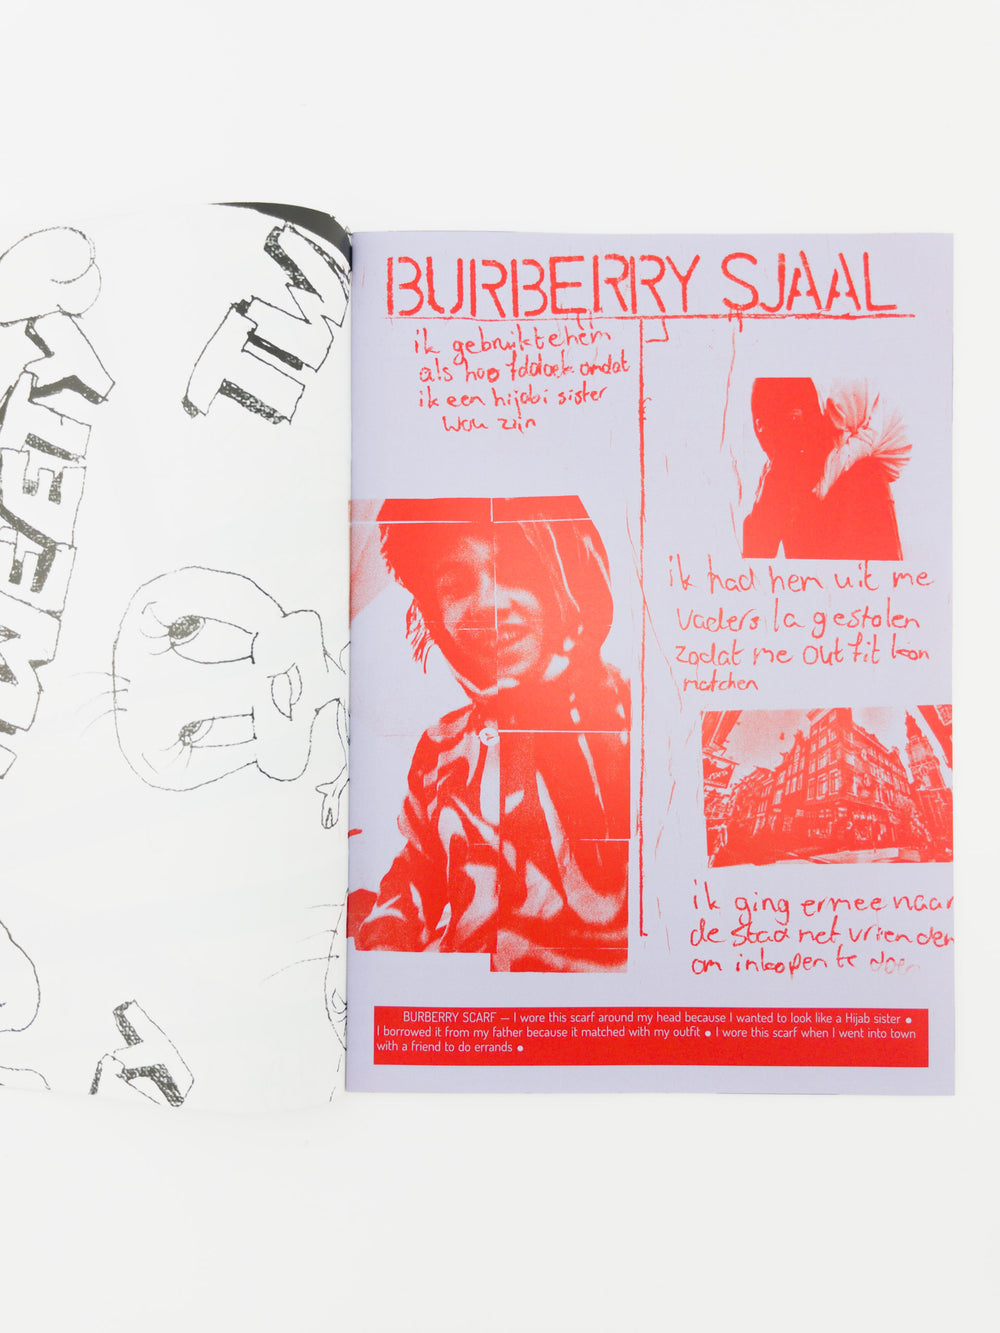 TW
TWEETY
TY
BURBERRY SJAAL
ik gebruikte hem
als hoofddoek omdat
ik een hijabi sister
wou zijn
ik had hem uit me
vaders la gestolen
zodat me outfit kon
matchen
ik ging ermee naar
de stad met vrienden
om inkopen te doen
BURBERRY SCARF — I wore this scarf around my head because I wanted to look like a Hijab sister ●
I borrowed it from my father because it matched with my outfit ● I wore this scarf when I went into town
with a friend to do errands ●